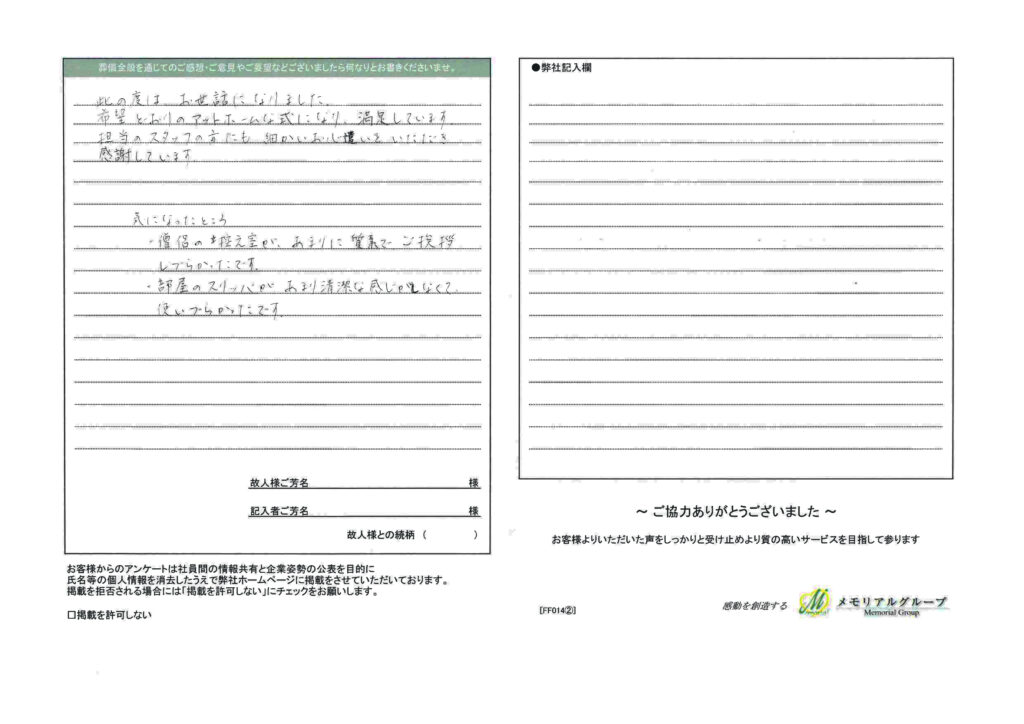 葬儀全般を通じてのご感想・ご意見やご要望などございましたら何なりとお書きくださいませ。
此の度は、お世話になりました。
希望どおりのアットホームな式になり、満足しています。
担当のスタッフの方にも細かいお心遣いをいただき
感謝しています。
気になったところ
・僧侶の控え室が、あまりに質素で、ご挨拶
しづらかったです。
・部屋のスリッパがあまり清潔な感じがしなくて、
使いづらかったです。
故人様ご芳名 様
記入者ご芳名 様
故人様との続柄 ( )
お客様からのアンケートは社員間の情報共有と企業姿勢の公表を目的に
氏名等の個人情報を消去したうえで弊社ホームページに掲載をさせていただいております。
掲載を拒否される場合には「掲載を許可しない」にチェックをお願いします。
□掲載を許可しない
●弊社記入欄
～ ご協力ありがとうございました ～
お客様よりいただいた声をしっかりと受け止めより質の高いサービスを目指して参ります
[FF014②]
感動を創造する
メモリアルグループ
Memorial Group